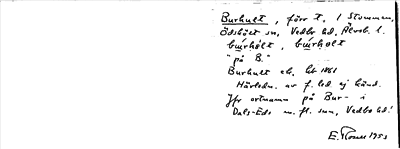 Burhult, förr t. 1 Stommen,
Ödskölt sn, Vedbo hd, Älvsb. l.
búrhòlt, búrholt
"på B."
Burhult eb. Gk 1861
Härledn. av f. led ej känd.
Jfr ortnamn på Bur- i
Dals-Eds m. fl. snr, Vedbo hd!
E. 1953